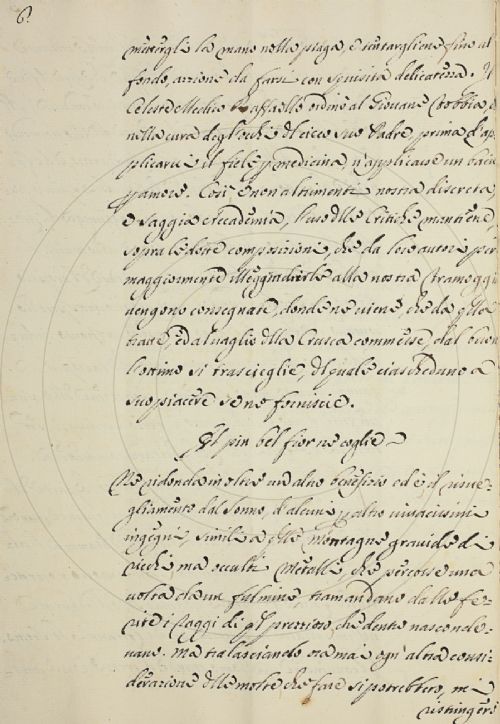 6.
mettergli la mano nella piaga, e tentargliene fino al
fondo, azzione da farsi con squisita delicatezza. Il
Celeste Medico Raffaello ordinò al Giovane Tobbia,
nella cura degl'occhi del cieco suo Padre, prima d'ap
plicarvi il fiele p medicina, v'applicasse un bacio
p amore. Così e non altrimenti nostra discreta,
e saggia Accademia, l'uso delle Critiche mantiene,
sopra le dette composizioni, che da loro autori per
maggiormente illeggiadrirle alla nostra Tramoggia
vengono consegnate, donde ne viene, che da qlla
tratte, ed al vaglio della Crusca commesse, dal buon
l'ottimo si trasceglie, del quale ciascheduno a
suo piacere se ne fornisce.
Il più bel fior ne coglie
Ne ridonda inoltre un altro benefizio ed è il risve-
gliamento dal sonno, d'alcuni p altro vivacissimi
ingegni, simili a qlle Montagne gravide di
ricchi ma occulti Metalli, che percosse una
volta da un fulmine, tramandano dalle fe-
rite i raggi di ql prezzioso, che dentro nasconde-
vano. Ma tralasciando oramai ogn'altra consi-
derazione delle molte che fare si potrebbero, mi
ristringerò